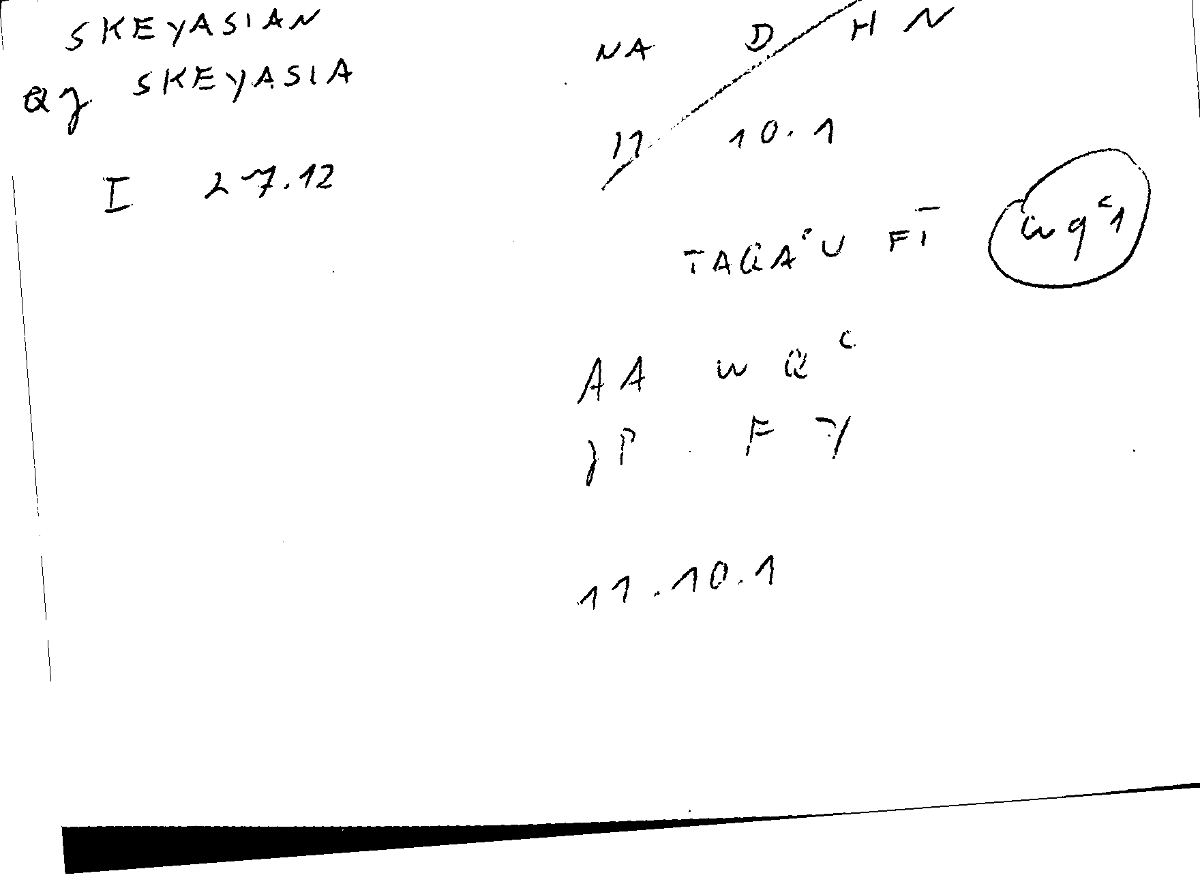 SKEYASIAN
QJ SKEYASIA
I 27.12
NA D H N
11 10.1
TAQA'U FĪ wqʿ1
AA w Q ʿ
JP F Y
11.10.1